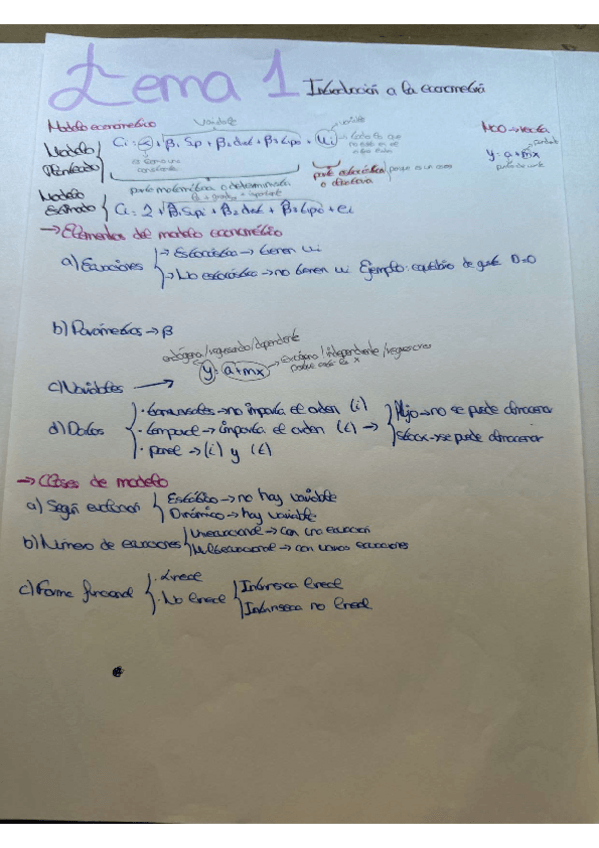 Tema 1 Introducción a la econometría
Modelo econométrico
variable
MCO → recta
Modelo Planteado { Ci = α + β1 Sp + β2 def + β3 tipo + ui
y = a + mx
pendiente
punto de corte
es como una constante
parte matemática o determinista
parte estocástica o aleatoria
Modelo Estimado { Ci = 2 + β1 Spi + β2 def + β3 tipo + ei
→ Elementos del modelo econométrico
a) Ecuaciones
→ Estocástica → tienen ui
→ No estocástica → no tienen ui Ejemplo: equilibrio de O=O
b) Parámetros → β
endógena/regresando/dependiente
Exógena/independiente/regresores
c) Variables → y = a + mx
d) Datos
· transversales → no importa el orden (i)
· temporal → importa el orden (t) →
· panel → (i) y (t)
Flujo → no se puede almacenar
Stock → se puede almacenar
→ Clases de modelo
a) Según evolución
Estático → no hay variable
Dinámico → hay variable
b) Número de ecuaciones
Uniecuacional → con una ecuación
Multiecuacional → con varias ecuaciones
c) Forma funcional
· Lineal
· No lineal
Intrínseca lineal
Intrínseca no lineal